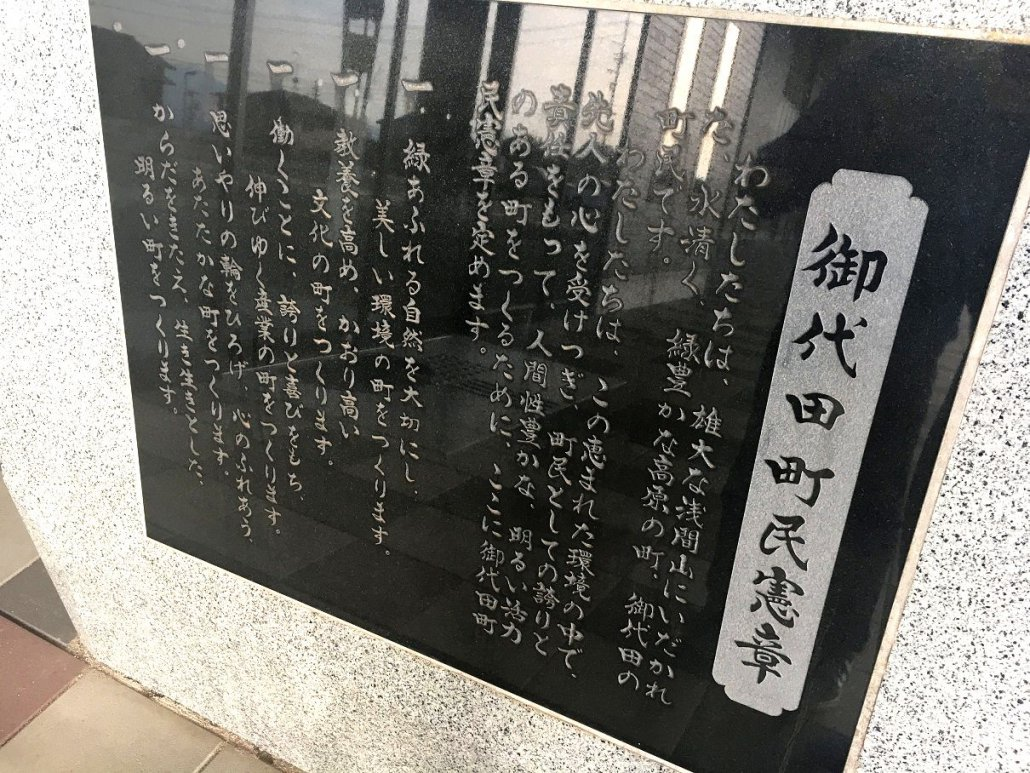 御代田町民憲章
わたしたちは、雄大な浅間山にいだかれ
た、水清く、緑豊かな高原の町、御代田の
町民です。
わたしたちは、この恵まれた環境の中で、
先人の心を受けつぎ、町民としての誇りと
責任をもって、人間性豊かな、明るい活力
のある町をつくるために、ここに御代田町
民憲章を定めます。
一、緑あふれる自然を大切にし、
美しい環境の町をつくります。
一、教養を高め、かおり高い
文化の町をつくります。
一、働くことに、誇りと喜びをもち、
伸びゆく産業の町をつくります。
一、思いやりの輪をひろげ、心のふれあう、
あたたかな町をつくります。
一、からだをきたえ、生き生きとした、
明るい町をつくります。